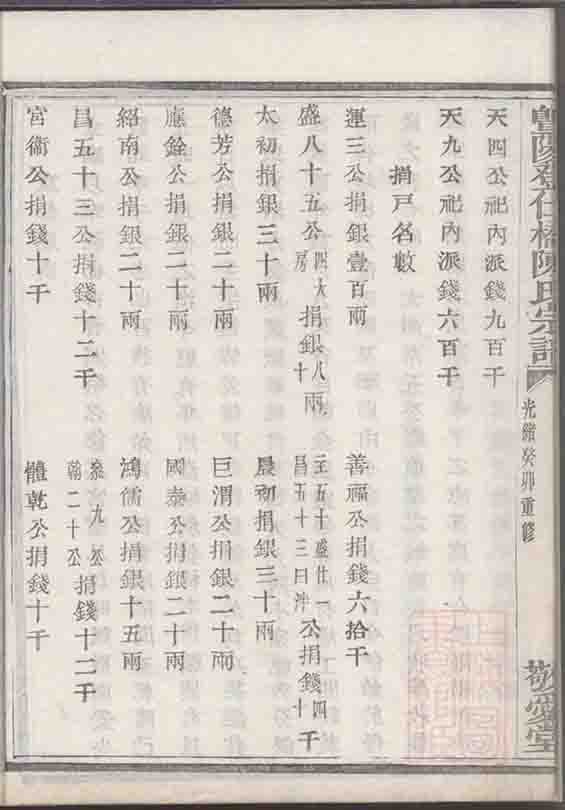 暨陽登仕橋陳氏宗譜
光緒癸卯重修
敬愛堂
天四公祀內派錢九百千
天九公祀內派錢六百千
捐戸名數
運三公捐銀壹百兩
善福公捐錢六拾千
盛八十五公四大房捐銀八十兩
五十盛仕一昌五十三曰公捐錢四十千
太初捐銀三十兩
晨初捐銀三十兩
德芳公捐銀二十兩
巨渭公捐銀二十兩
應銓公捐銀二十兩
國泰公捐銀二十兩
紹南公捐銀二十兩
鴻儒公捐銀十五兩
昌五十三公捐錢十二千
九公翰二十公捐錢十二千
宮衞公捐錢十千
體乾公捐錢十千